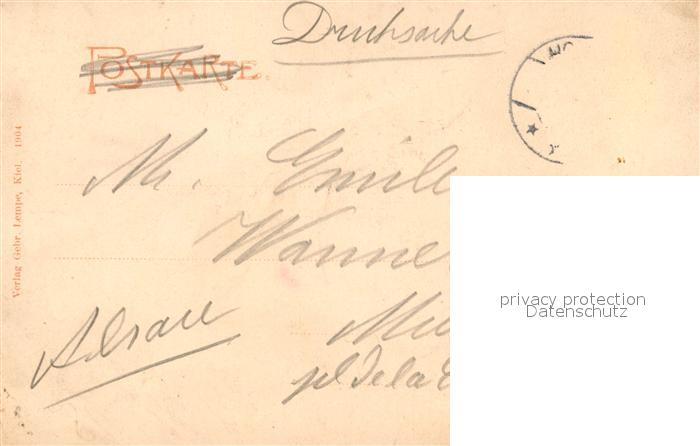 Drucksache
POSTKARTE.
Verlag Gebr. Lempe, Kiel. 1904
Mr. Emile
Wanne
Alsace
pl de la
privacy protection
Datenschutz